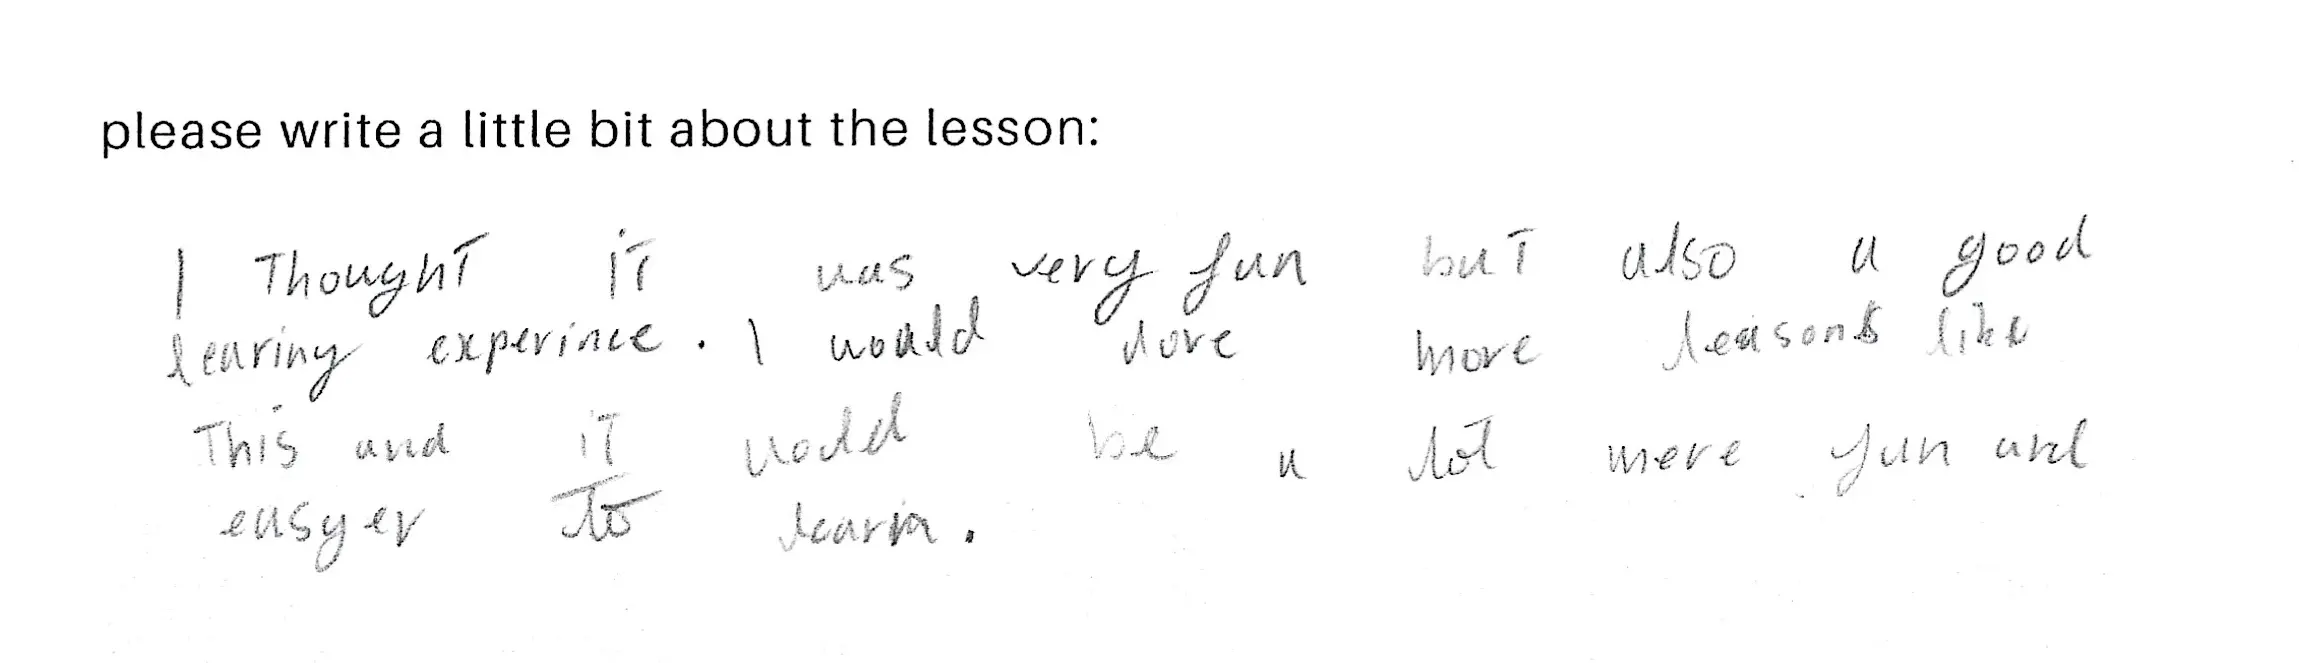 please write a little bit about the lesson:
I Thought iT was very fun buT also a good
learing experince. I would love more leasons like
This and iT would be a lot more fun and
easyer to learn.